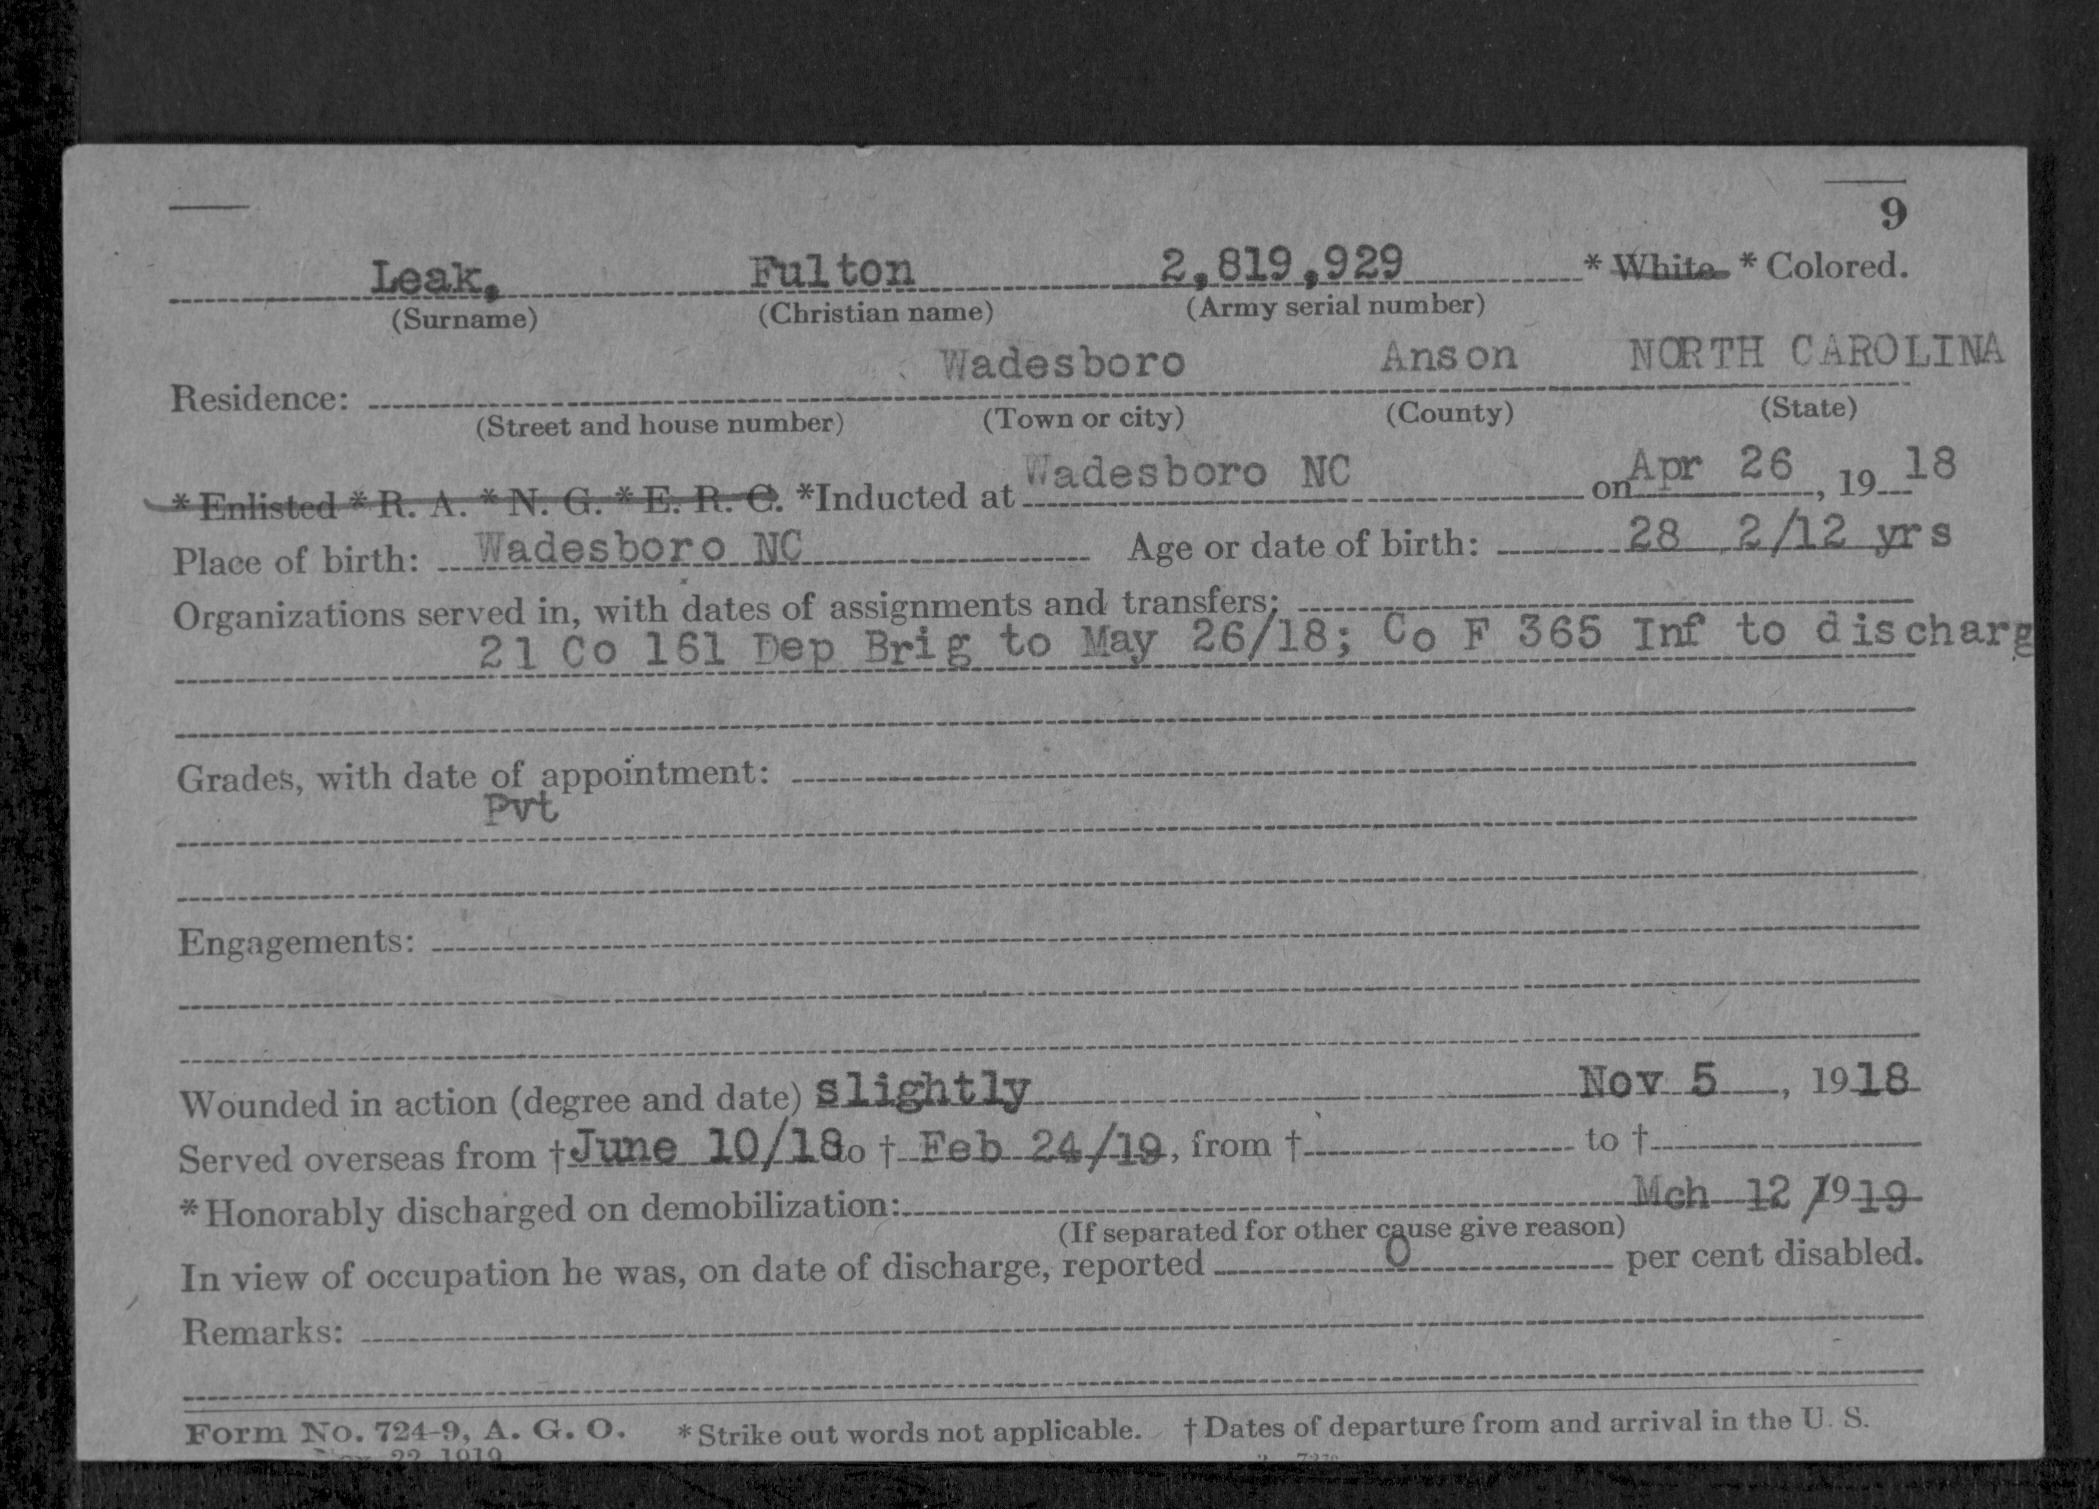 9
Leak, Fulton 2,819,929 * White * Colored.
(Surname) (Christian name) (Army serial number)
Wadesboro Anson NORTH CAROLINA
Residence:
(Street and house number) (Town or city) (County) (State)
* Enlisted * R. A. * N. G. * E. R. C. *Inducted at Wadesboro NC on Apr 26, 19 18
Place of birth: Wadesboro NC Age or date of birth: 28 2/12 yrs
Organizations served in, with dates of assignments and transfers:
21 Co 161 Dep Brig to May 26/18; Co F 365 Inf to discharg
Grades, with date of appointment:
Pvt
Engagements:
Wounded in action (degree and date) slightly Nov 5, 1918
Served overseas from † June 10/18 to † Feb 24/19, from † to †
* Honorably discharged on demobilization: Mch 12 /1919
(If separated for other cause give reason)
In view of occupation he was, on date of discharge, reported 0 per cent disabled.
Remarks:
Form No. 724-9, A. G. O. * Strike out words not applicable. † Dates of departure from and arrival in the U. S.
22, 1919